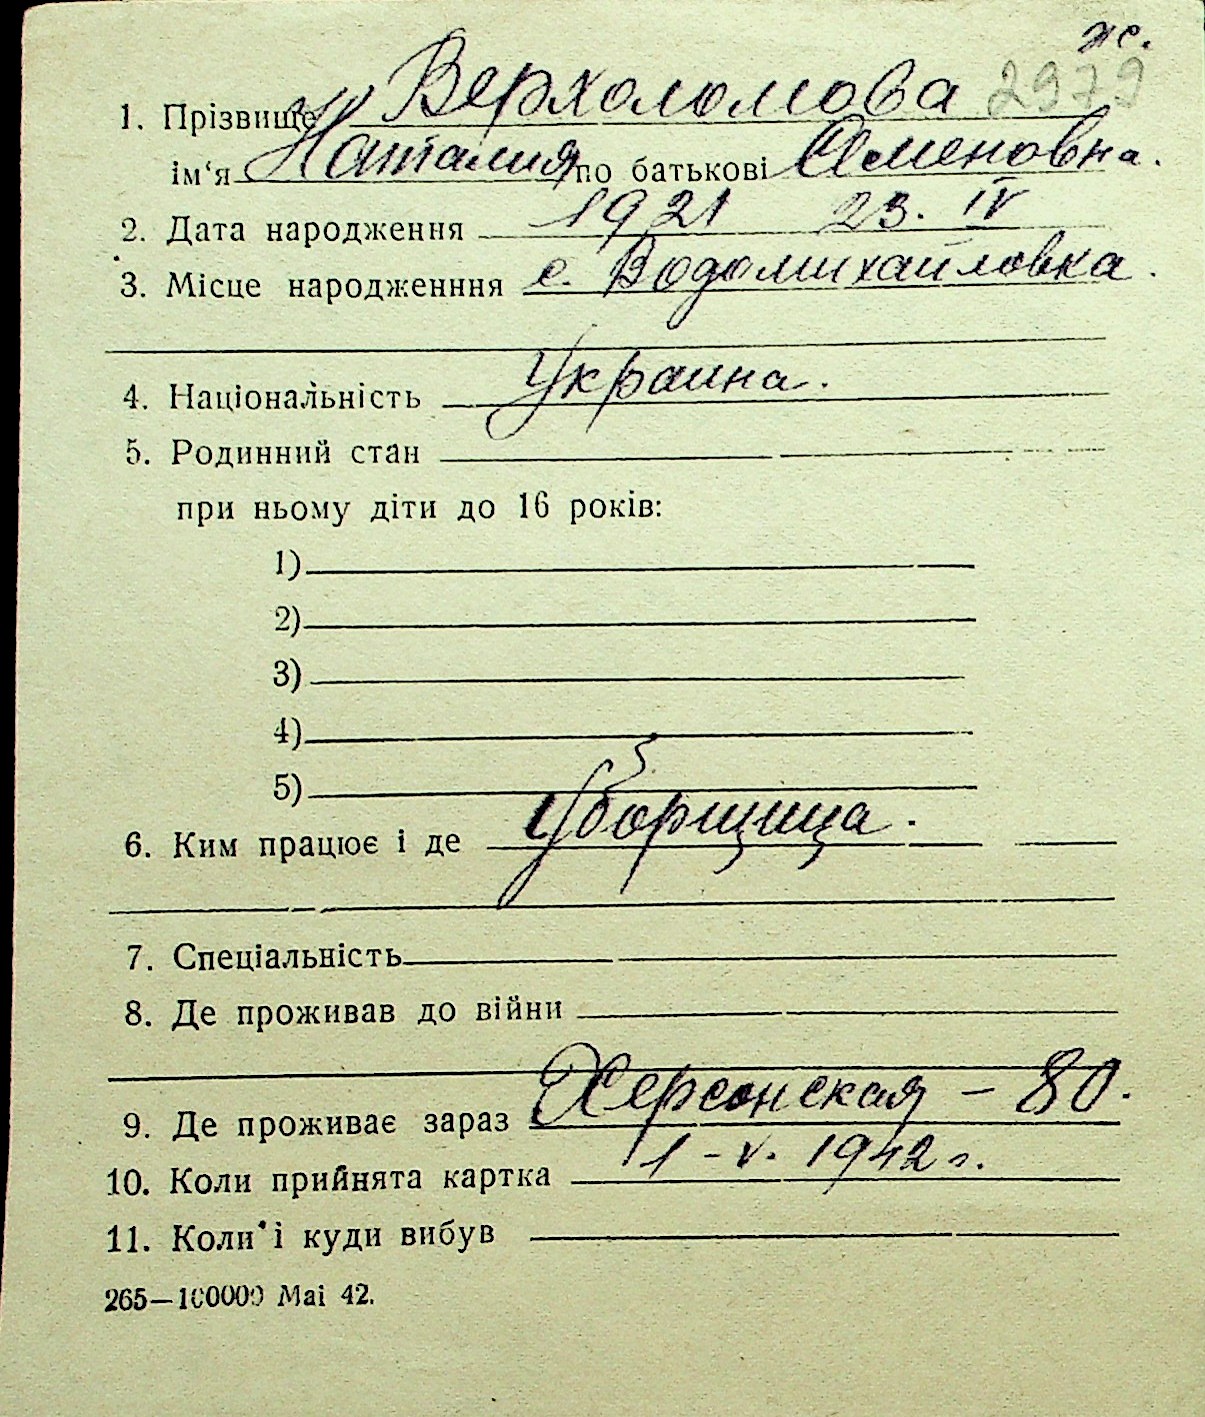 ж.
2979
1. Прізвище Верхоломова
ім‘я Наталия по батькові Семеновна.
2. Дата народження 1921 23. IV
3. Місце народженння с. Водомихайловка.
4. Національність Украина.
5. Родинний стан
при ньому діти до 16 років:
1)
2)
3)
4)
5)
6. Ким працює і де Уборщица.
7. Спеціальність
8. Де проживав до війни
9. Де проживає зараз Херсонская – 80.
10. Коли прийнята картка 1 – V. 1942 г.
11. Коли і куди вибув
265—100000 Mai 42.